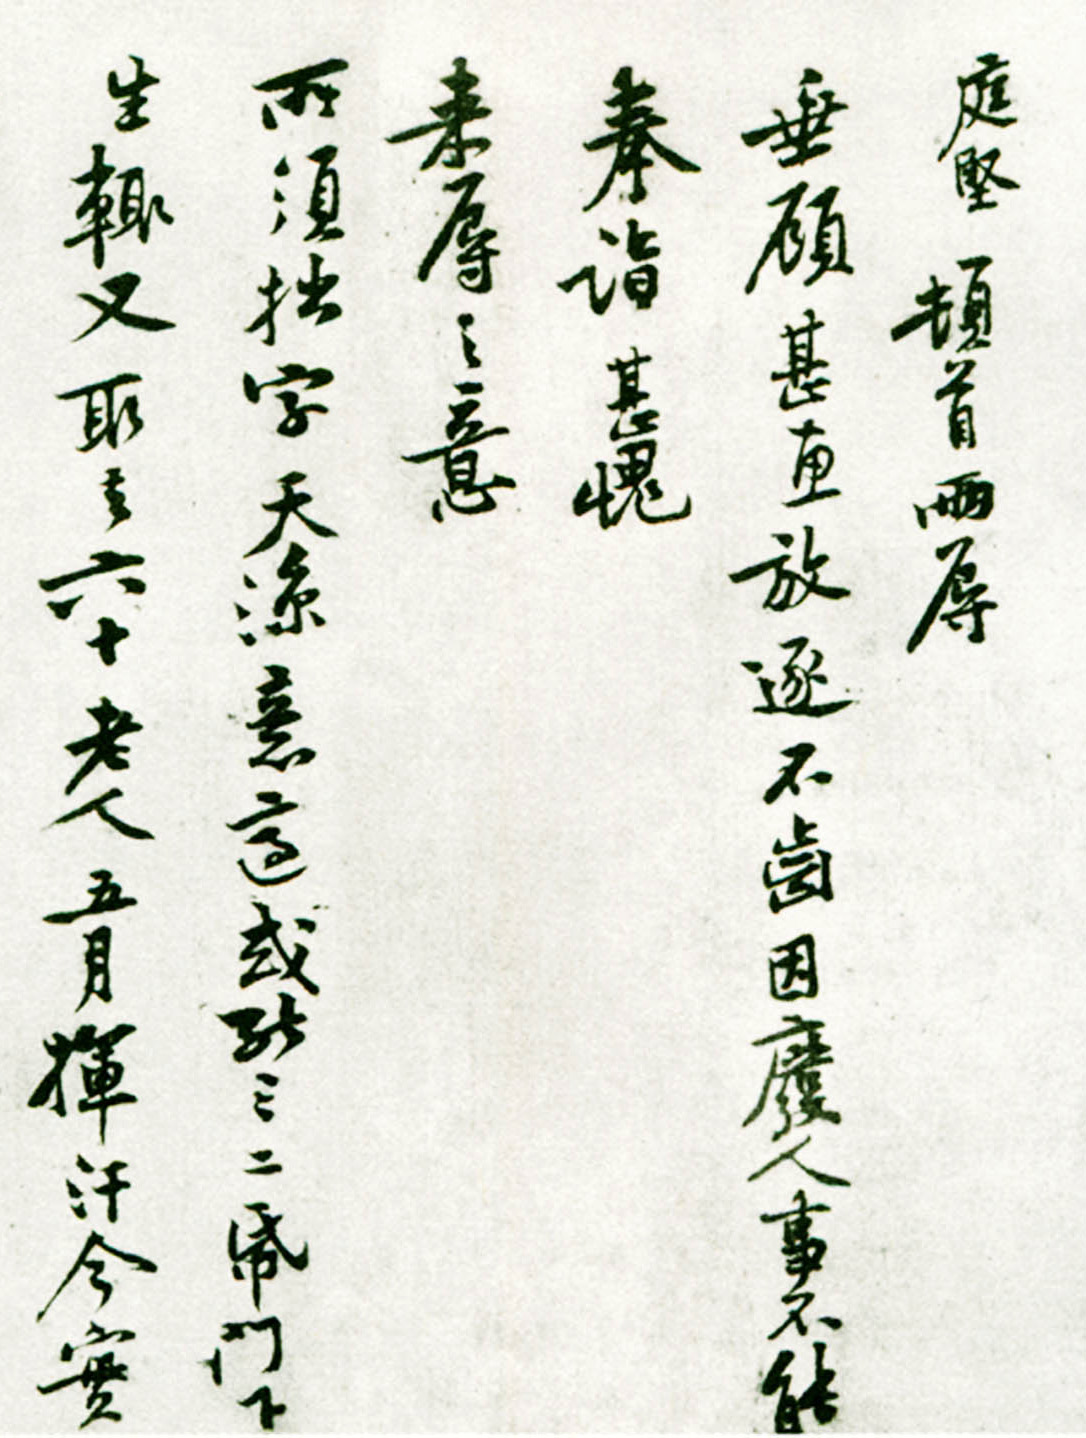 庭堅頓首兩辱
垂顧甚惠放逐不齒因廢人事不能
奉詣甚愧
来辱之意
所須拙字天凉意適或能三二紙門下
生輒又取去六十老人五月揮汗今實